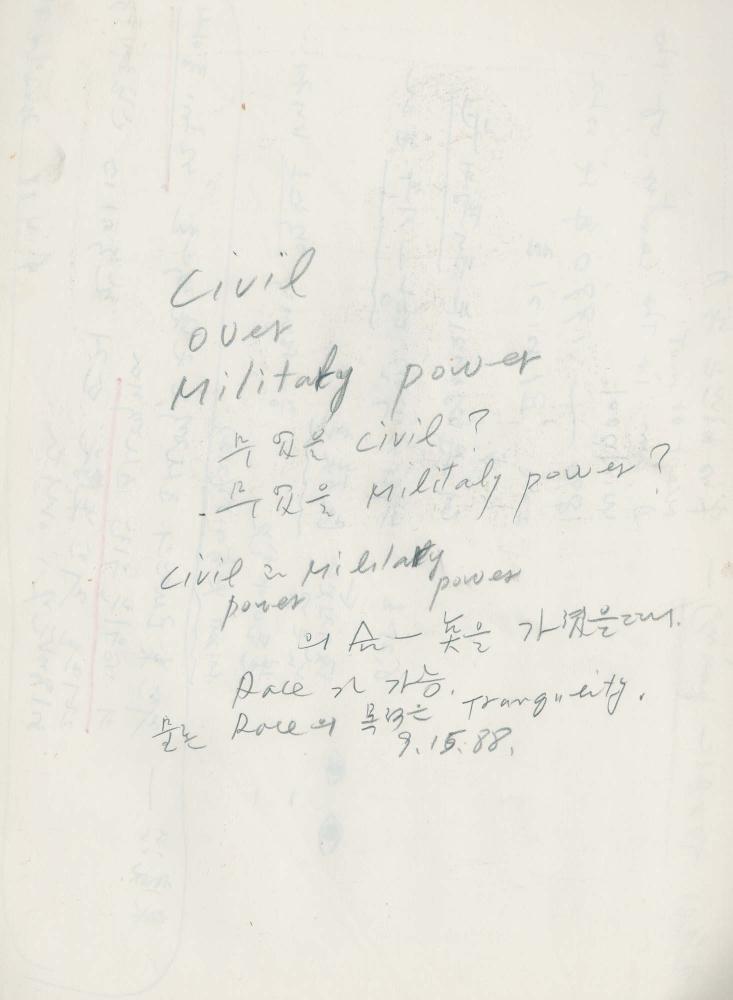 Civil
over
Military power
무엇을 civil?
. 무엇을 Militaly power?
Civil 과 Military
power power
의 승—못을 가졌을때.
Race 가 가능.
물론 Race의 목적은 Tranquility.
9.15.88.